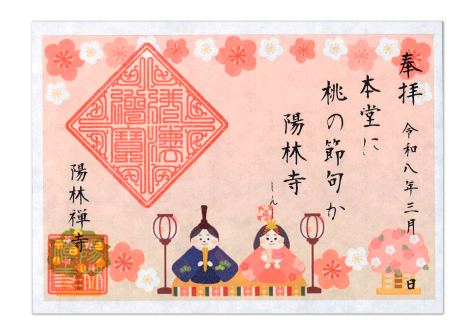 奉拝 令和八年三月 日
本堂に
桃の節句か
陽林寺
しん
陽林禅寺